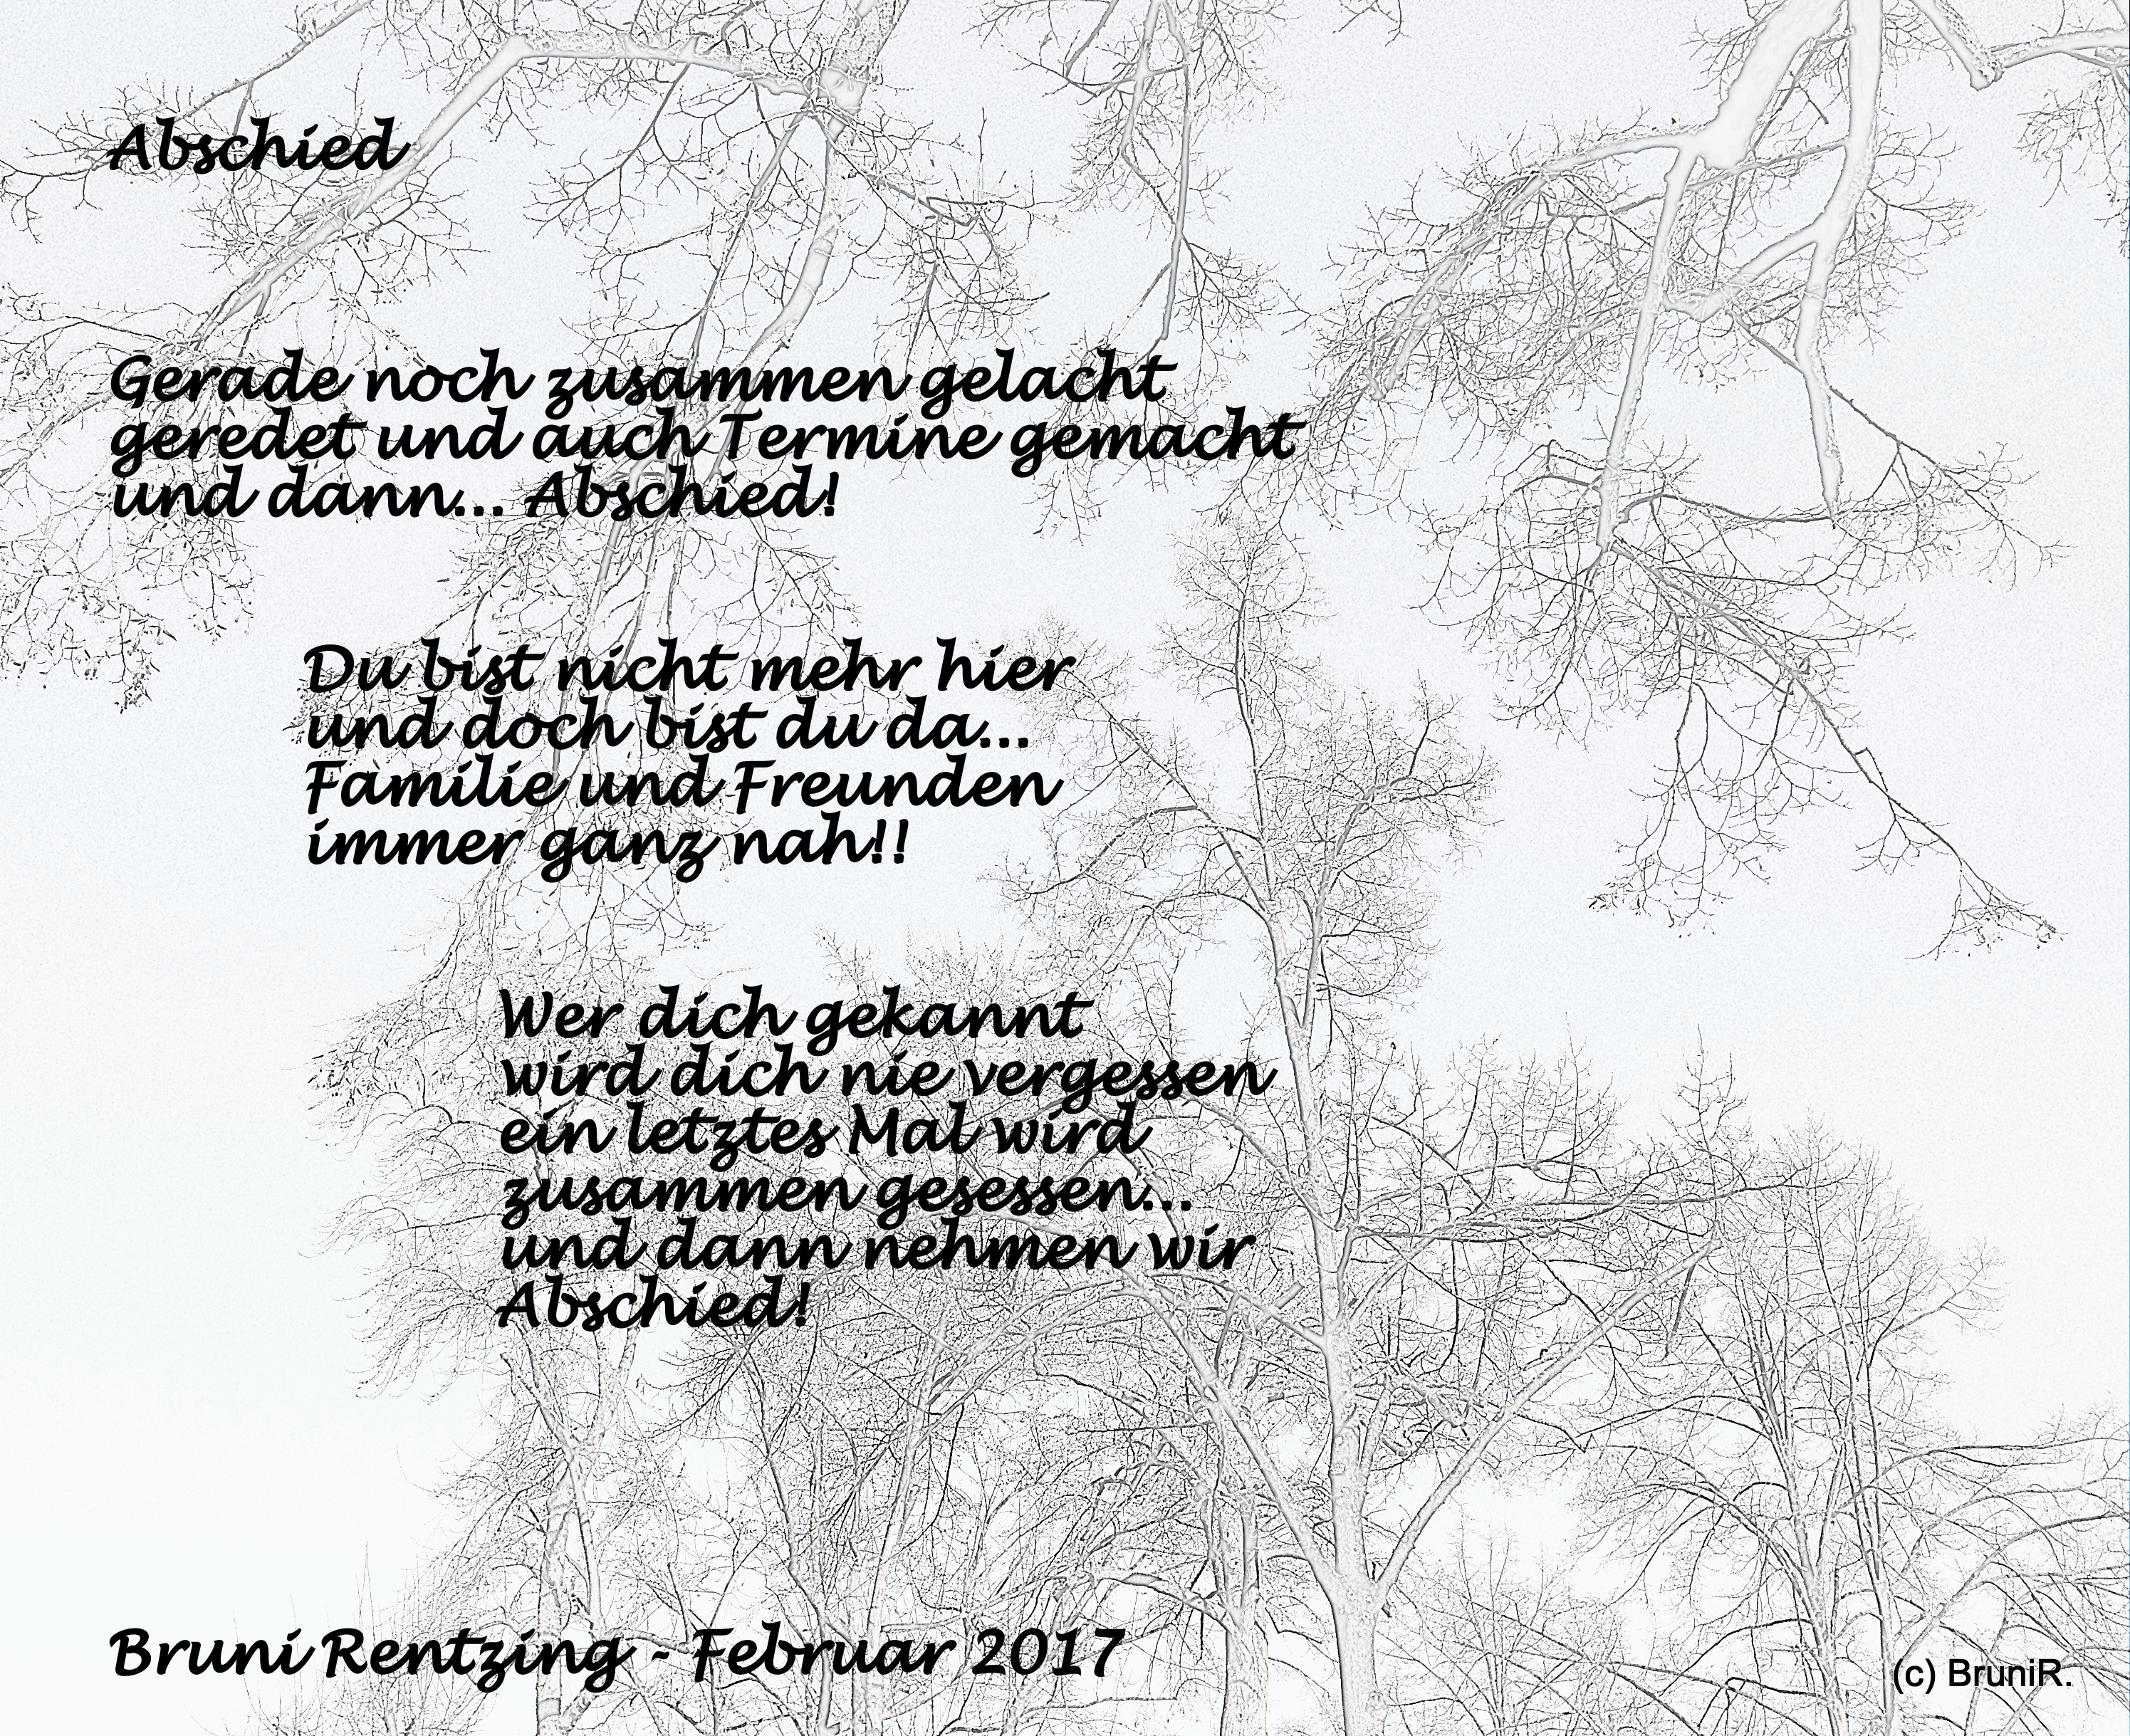 Abschied
Gerade noch zusammen gelacht
geredet und auch Termine gemacht
und dann... Abschied!
Du bist nicht mehr hier
und doch bist du da...
Familie und Freunden
immer ganz nah!!
Wer dich gekannt
wird dich nie vergessen
ein letztes Mal wird
zusammen gesessen...
und dann nehmen wir
Abschied!
Bruni Rentzing - Februar 2017
(c) BruniR.